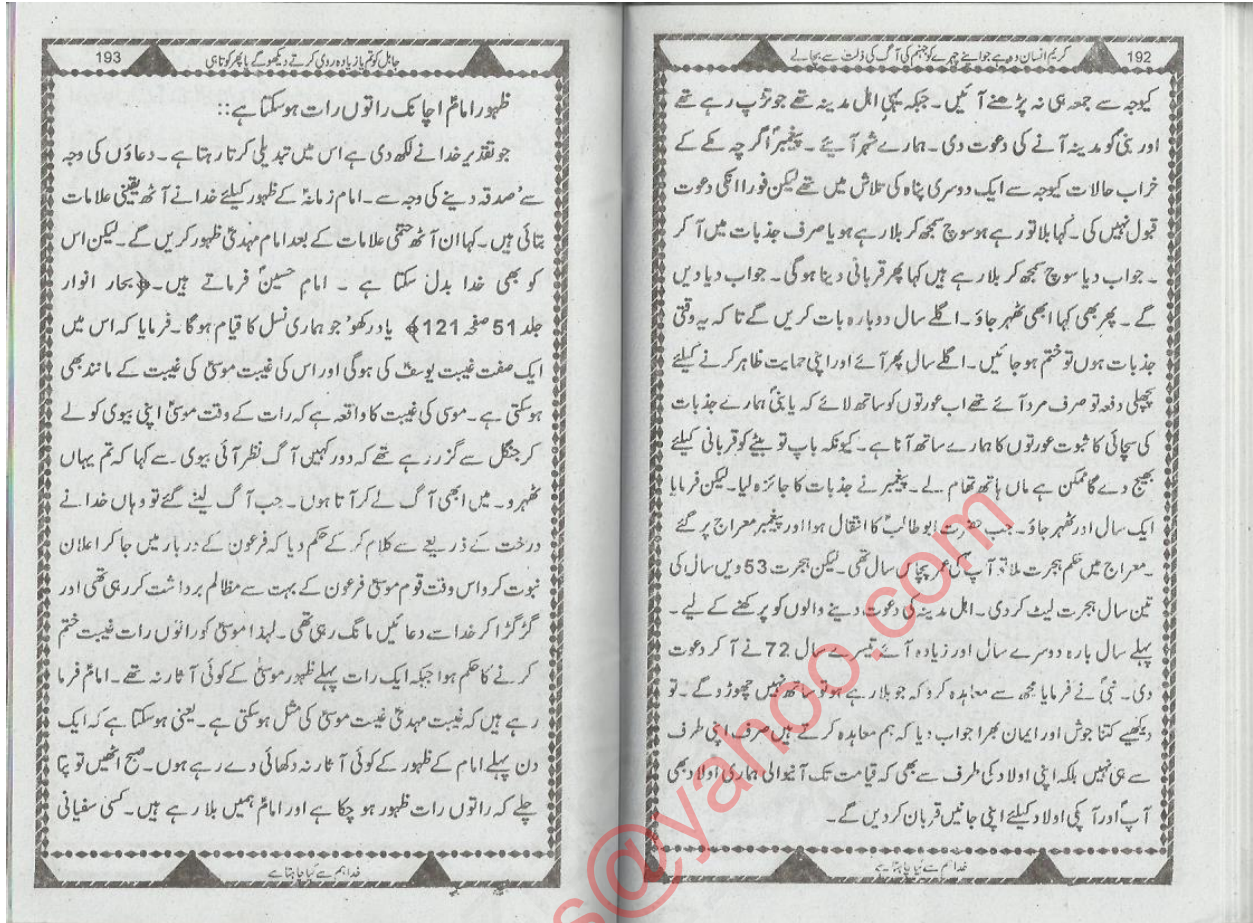 192
کریم انسان وہ ہے جو اپنے چہرے کو جہنم کی آگ کی ذلت سے بچالے
کیوجہ سے جمعہ ہی نہ پڑھنے آئیں۔ جبکہ یہی اہل مدینہ تھے جو تڑپ رہے تھے
اور نبیؐ کو مدینہ آنے کی دعوت دی۔ ہمارے شہر آیئے۔ پیغمبرؐ اگرچہ مکے کے
خراب حالات کیوجہ سے ایک دوسری پناہ کی تلاش میں تھے لیکن فورا انکی دعوت
قبول نہیں کی۔ کہا بلا تو رہے ہو سوچ سمجھ کر بلا رہے ہو یا صرف جذبات میں آ کر
۔ جواب دیا سوچ سمجھ کر بلا رہے ہیں کہا پھر قربانی دینا ہوگی۔ جواب دیا دیں
گے۔ پھر بھی کہا ابھی ٹھہر جاؤ۔ اگلے سال دوبارہ بات کریں گے تا کہ یہ وقتی
جذبات ہوں تو ختم ہو جائیں۔ اگلے سال پھر آئے اور اپنی حمایت ظاہر کرنے کیلئے
پچھلی دفعہ تو صرف مرد آئے تھے اب عورتوں کو ساتھ لائے کہ یا نبیؐ ہمارے جذبات
کی سچائی کا ثبوت عورتوں کا ہمارے ساتھ آنا ہے۔ کیونکہ باپ تو بیٹے کو قربانی کیلئے
بھیج دے گا ممکن ہے ماں ہاتھ تھام لے۔ پیغمبر نے جذبات کا جائزہ لیا۔ لیکن فرمایا
ایک سال اور ٹھہر جاؤ۔ جب حضرت ابوطالبؑ کا انتقال ہوا اور پیغمبر معراج پر گئے
۔ معراج میں حکم ہجرت ملا تو آپؐ کی عمر پچاس سال تھی۔ لیکن ہجرت 53 ویں سال کی
تین سال ہجرت لیٹ کر دی۔ اہل مدینہ کی دعوت دینے والوں کو پرکھنے کے لیے۔
پہلے سال بارہ دوسرے سال اور زیادہ آئے تیسرے سال 72 نے آ کر دعوت
دی۔ نبیؐ نے فرمایا مجھ سے معاہدہ کرو کہ جو بلا رہے ہو تو ساتھ نہیں چھوڑو گے۔ تو
دیکھیے کتنا جوش اور ایمان بھرا جواب دیا کہ ہم معاہدہ کرتے ہیں صرف اپنی طرف
سے ہی نہیں بلکہ اپنی اولاد کی طرف سے بھی کہ قیامت تک آنیوالی ہماری اولاد بھی
آپؐ اور آپکی اولاد کیلئے اپنی جانیں قربان کر دیں گے۔
خدا ہم سے کیا چاہتا ہے
193
جاہل کو تم یا زیادہ روی کرتے دیکھو گے یا پھر کوتاہی
ظہور امامؑ اچانک راتوں رات ہو سکتا ہے::
جو تقدیر خدا نے لکھ دی ہے اس میں تبدیلی کرتا رہتا ہے۔ دعاؤں کی وجہ
سے' صدقہ دینے کی وجہ سے۔ امام زمانہؑ کے ظہور کیلئے خدا نے آٹھ یقینی علامات
بتائی ہیں۔ کہا ان آٹھ حتمی علامات کے بعد امام مہدیؑ ظہور کریں گے۔ لیکن اس
کو بھی خدا بدل سکتا ہے۔ امام حسینؑ فرماتے ہیں۔ ﴿بحار انوار
جلد 51 صفحہ 121﴾ یاد رکھو' جو ہماری نسل کا قیام ہوگا۔ فرمایا کہ اس میں
ایک صفت غیبت یوسفؑ کی ہوگی اور اس کی غیبت موسیٰؑ کی غیبت کے مانند بھی
ہو سکتی ہے۔ موسی کی غیبت کا واقعہ ہے کہ رات کے وقت موسیٰؑ اپنی بیوی کو لے
کر جنگل سے گزر رہے تھے کہ دور کہیں آگ نظر آئی بیوی سے کہا کہ تم یہاں
ٹھہرو۔ میں ابھی آگ لے کر آتا ہوں۔ جب آگ لینے گئے تو وہاں خدا نے
درخت کے ذریعے سے کلام کر کے حکم دیا کہ فرعون کے دربار میں جا کر اعلان
نبوت کرو اس وقت قوم موسیٰؑ فرعون کے بہت سے مظالم برداشت کر رہی تھی اور
گڑگڑا کر خدا سے دعائیں مانگ رہی تھی۔ لہذا موسیٰؑ کو راتوں رات غیبت ختم
کرنے کا حکم ہوا جبکہ ایک رات پہلے ظہور موسیٰؑ کے کوئی آثار نہ تھے۔ امامؑ فرما
رہے ہیں کہ غیبت مہدیؑ غیبت موسیٰؑ کی مثل ہو سکتی ہے۔ یعنی ہو سکتا ہے کہ ایک
دن پہلے امام کے ظہور کے کوئی آثار نہ دکھائی دے رہے ہوں۔ صبح اٹھیں تو پتا
چلے کہ راتوں رات ظہور ہو چکا ہے اور امامؑ ہمیں بلا رہے ہیں۔ کسی سفیانی
خدا ہم سے کیا چاہتا ہے
s@yahoo.com